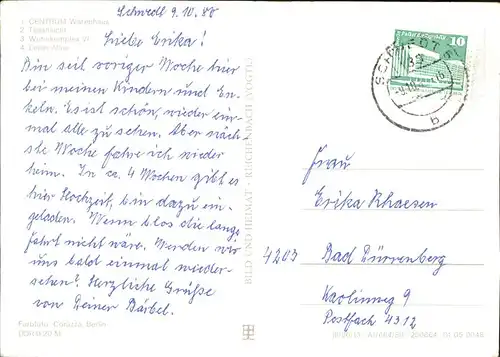 Schwedt 9.10.88
1 CENTRUM Warenhaus
2
3 Wohnkomplex VI
4 Lenin-Allee
Liebe Erika!
Bin seit voriger Woche hier
bei meinen Kindern und En-
keln. Es ist schön, wieder ein-
mal alle zu sehen. Aber näch-
ste Woche fahre ich wieder
heim. In ca. 4 Wochen gibt es
hier Hochzeit, bin dazu ein-
geladen. Wenn blos die lange
fahrt nicht wäre. Werden wir
uns bald einmal wieder-
sehen? Herzliche Grüße
von Deiner Bärbel.
BILD UND HEIMAT · REICHENBACH (VOGTL)
10
SCHWEDT
b
Frau
Erika
4203 Bad Dürrenberg
Karolineweg 9
Postfach 4312
Berlin
DDR 0,20 M
01 05 0046